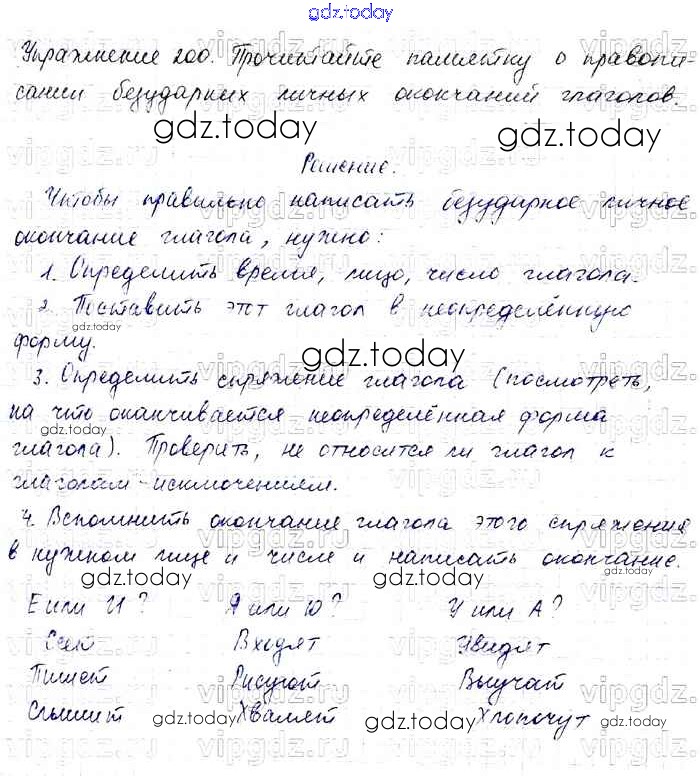 gdz.today
Упражнение 200. Прочитайте памятку о правопи-
сании безударных личных окончаний глаголов.
gdz.today gdz.today
Решение.
Чтобы правильно написать безударное личное
окончание глагола, нужно:
1. Определить время, лицо, число глагола.
2. Поставить этот глагол в неопределённую
gdz.today
форму.
gdz.today
3. Определить спряжение глагола (посмотреть,
на что оканчивается неопределённая форма
gdz.today gdz.today
глагола). Проверить, не относится ли глагол к
глаголам-исключением.
4. Вспомнить окончание глагола этого спряжения
в нужном лице и числе и написать окончание.
gdz.today gdz.today
Е или И? Я или Ю? У или А?
Сеет Входят Увидят
Пишет Рисуют Выучат
Слышит Хвалят Хлопочут
gdz.today gdz.today